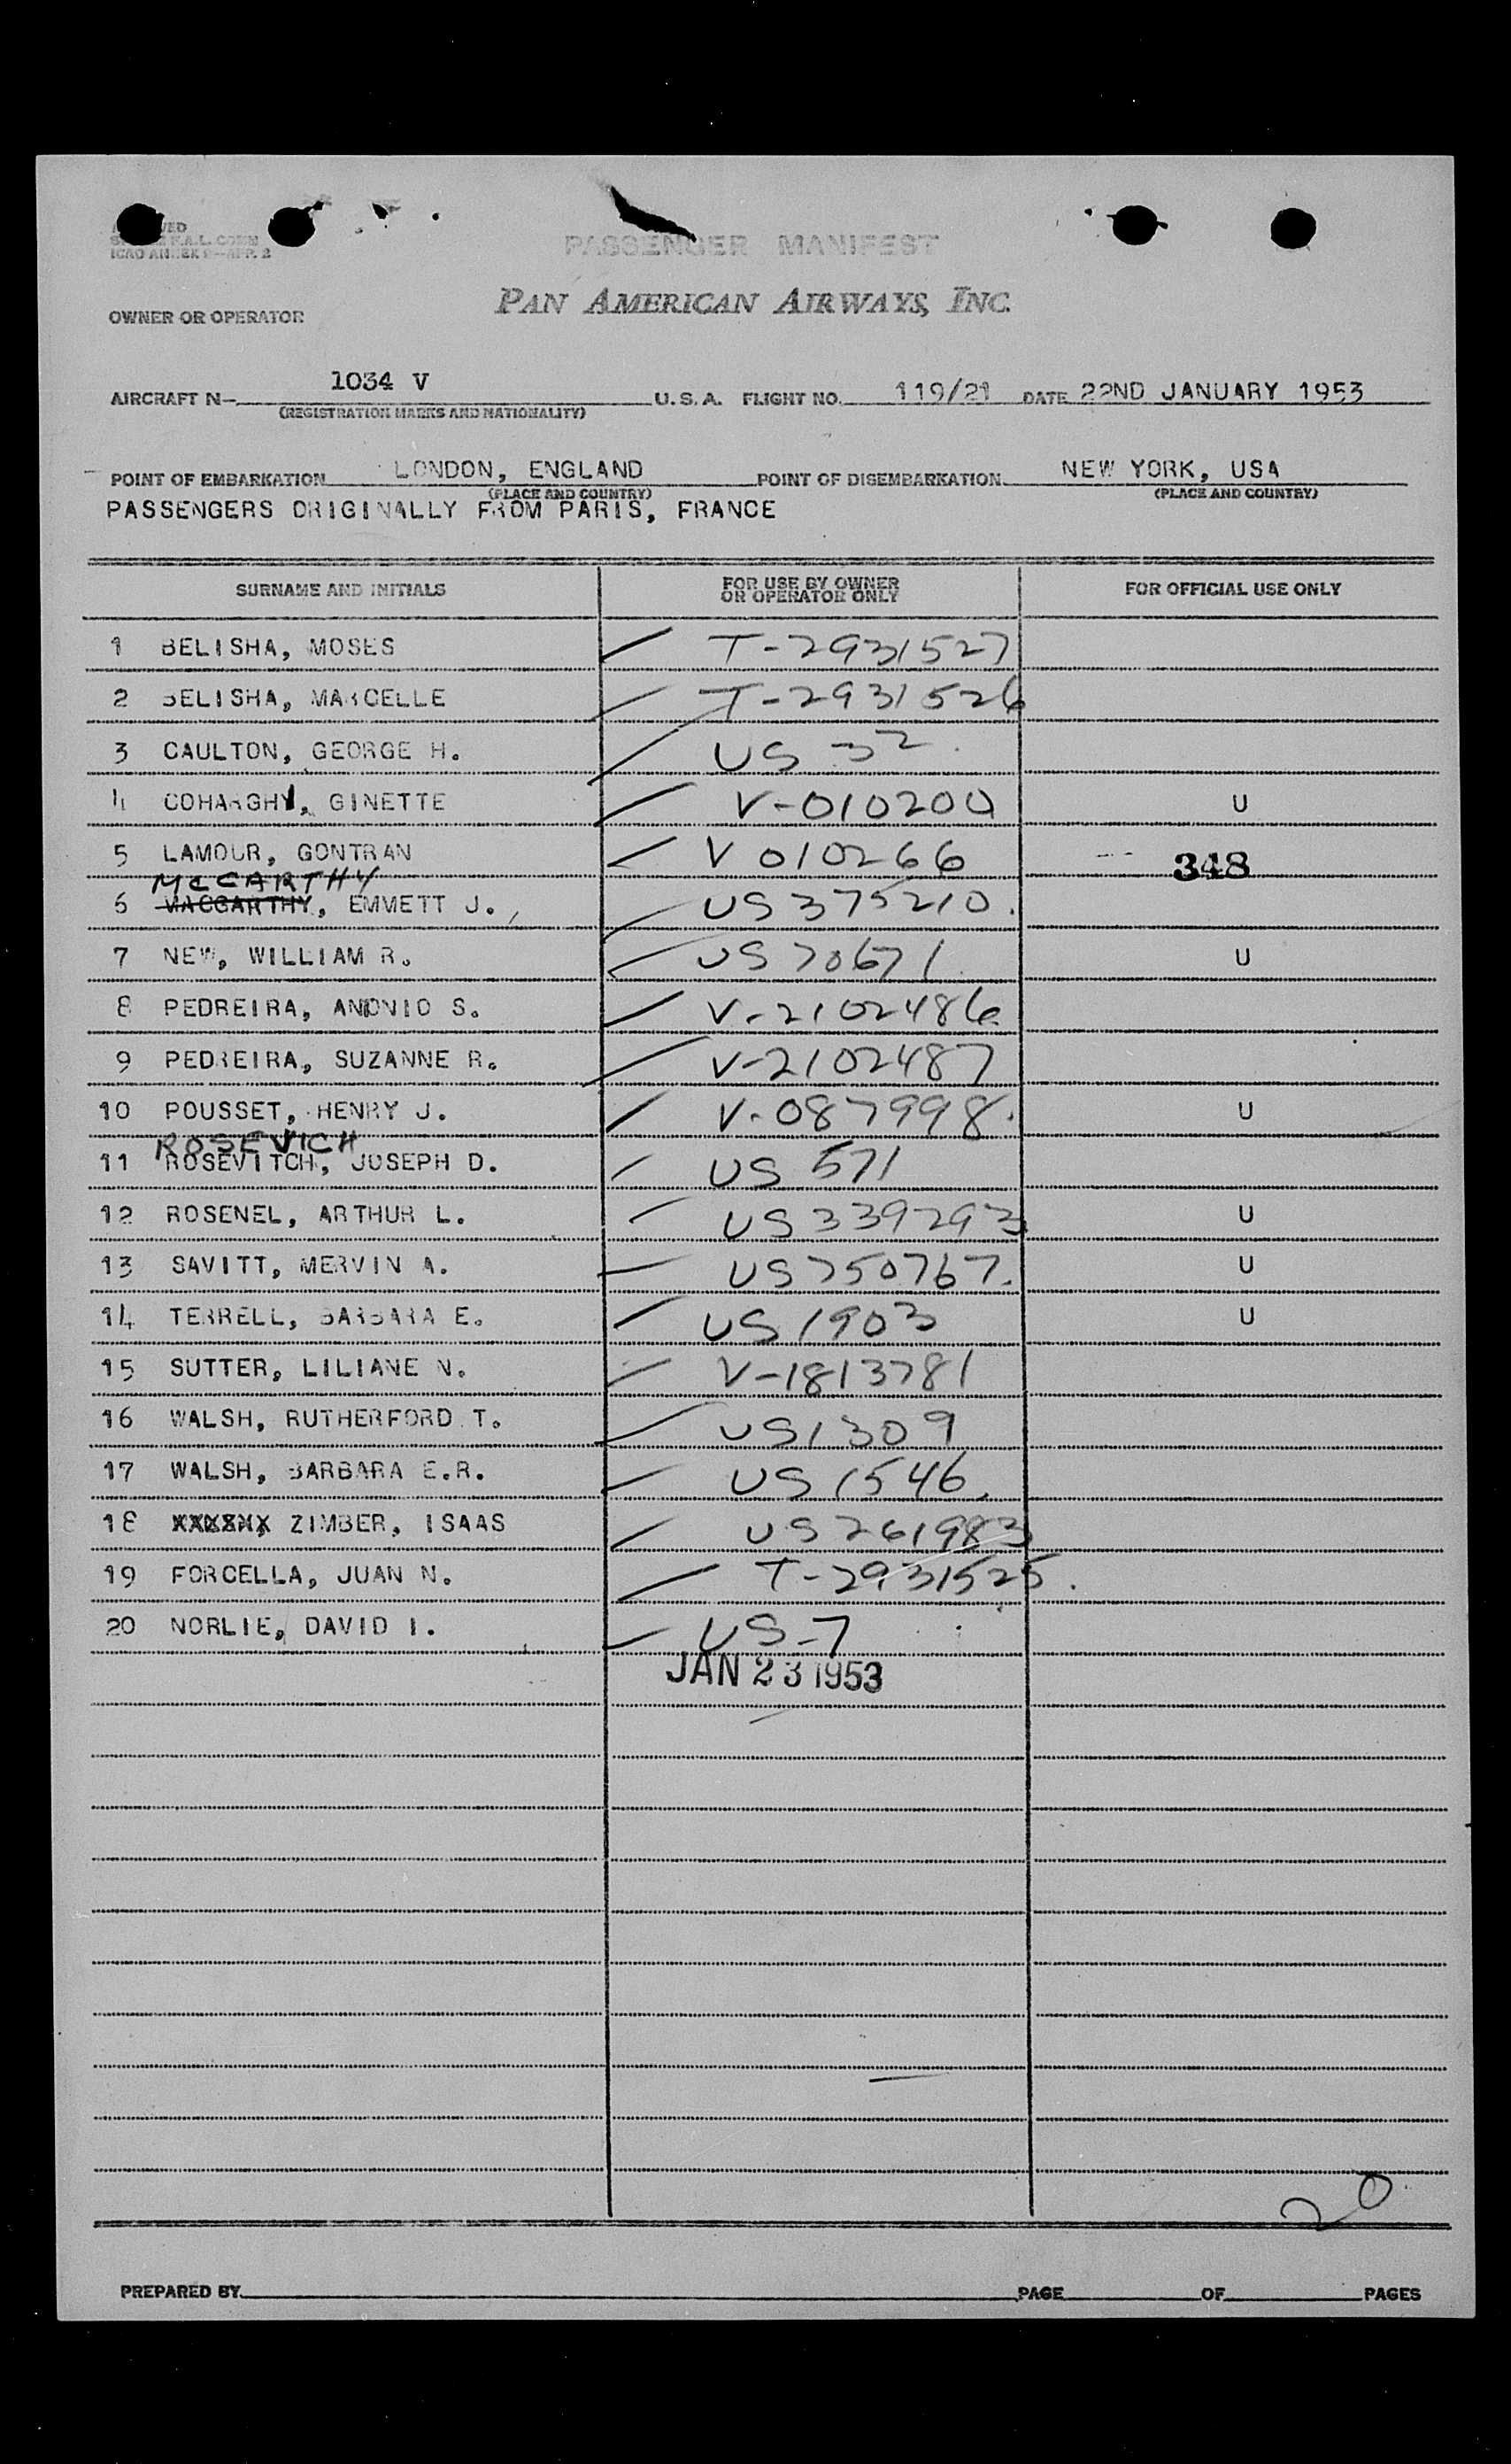 PASSENGER MANIFEST
ICAO ANNEX 9-APP. 2
PAN AMERICAN AIRWAYS, INC.
OWNER OR OPERATOR
1034 V
AIRCRAFT N- U.S.A. FLIGHT NO. 119/21 DATE 22ND JANUARY 1953
(REGISTRATION MARKS AND NATIONALITY)
POINT OF EMBARKATION LONDON, ENGLAND POINT OF DISEMBARKATION NEW YORK, USA
(PLACE AND COUNTRY) (PLACE AND COUNTRY)
PASSENGERS ORIGINALLY FROM PARIS, FRANCE
SURNAME AND INITIALS FOR USE BY OWNER OR OPERATOR ONLY FOR OFFICIAL USE ONLY
1 BELISHA, MOSES T-2931527
2 BELISHA, MARCELLE T-2931526
3 CAULTON, GEORGE H. US 32
4 GINETTE V-010200 U
5 LAMOUR, GONTRAN V 010266 348
McCARTHY
6 MACCARTHY, EMMETT J. US 375210.
7 NEW, WILLIAM R. US 70671 U
8 PEDREIRA, S. V-2102486
9 PEDREIRA, SUZANNE R. V-2102487
10 POUSSET, HENRY J. V-087998. U
ROSEVICH
11 ROSEVITCH, JOSEPH D. US 571
12 ROSENEL, ARTHUR L. US 339293 U
13 SAVITT, MERVIN A. US 750767. U
14 TERRELL, BARBARA E. US 1903 U
15 SUTTER, LILIANE N. V-1813781
16 WALSH, RUTHERFORD T. US 1309
17 WALSH, BARBARA E.R. US 1546.
18 ZIMBER, ISAAS US 261983
19 FORCELLA, JUAN N. T-2931525.
20 NORLIE, DAVID I. US-7
JAN 23 1953
20
PREPARED BY PAGE OF PAGES